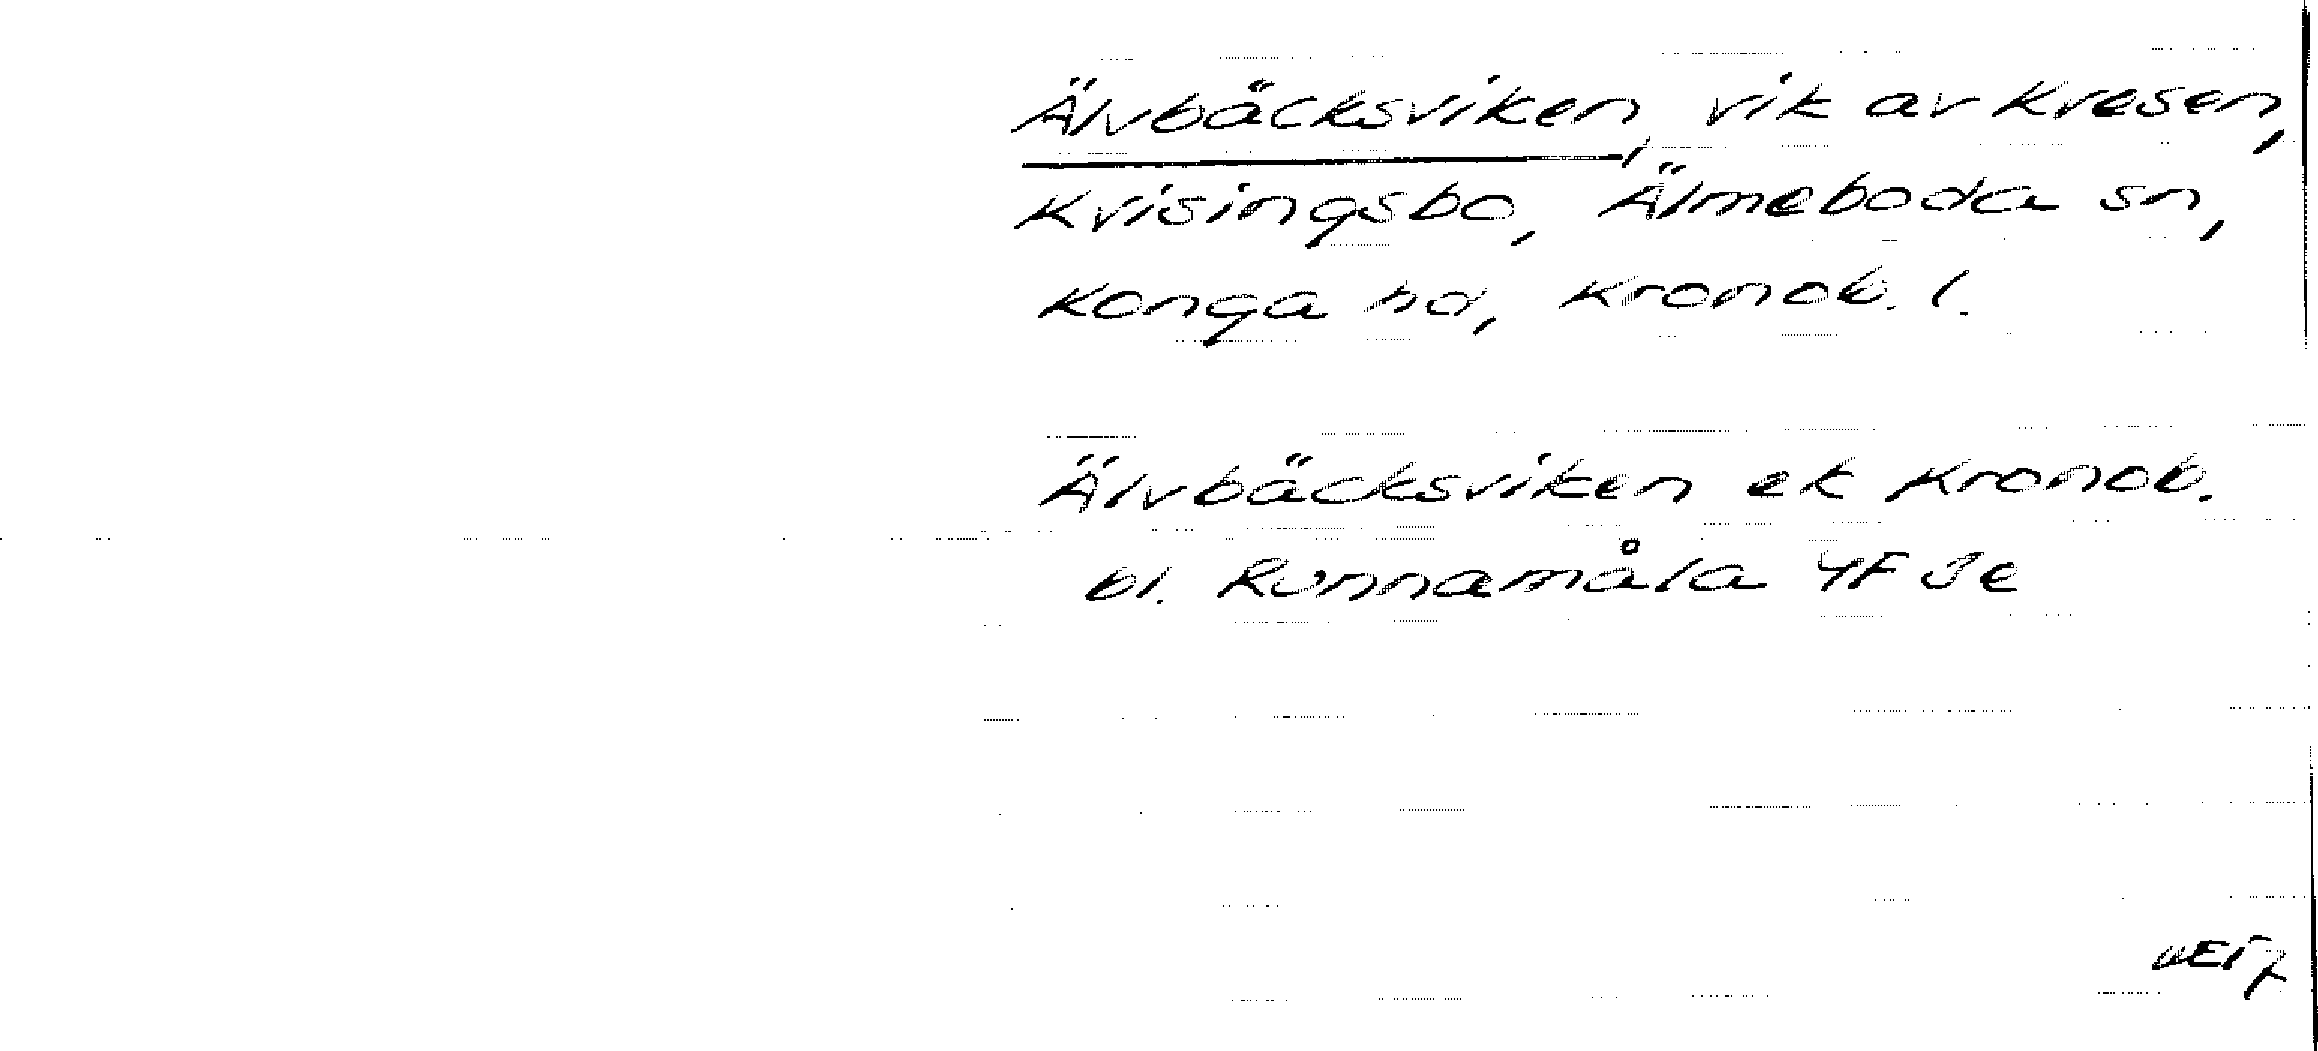 Älvbäcksviken, vik av Kvesen,
Kvisingsbo, Älmeboda sn,
Konga hd, Kronob. l.
Älvbäcksviken ek Kronob.
bl. Runnamåla 4F 3e